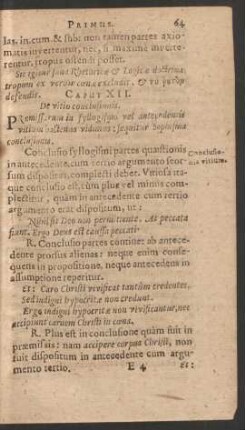 PRIMUS. 64
las, in, cum, & sub: non tamen partes axio-
matis invertentur, nec, si maxime inverte-
rentur, tropus ostendi posset.
Sic igitur sane Rhetorica & Logica doctrina
tropum ex verbis cœnæ excludit, & τὸ ῥητὸν
defendit. CAPUT XII.
De vitio conclusionis.
PRæmissarum in syllogismo vel antecedentis
vitium hactenus vidimus: sequitur Sophisma
conclusionis.
Conclusio syllogismi partes quæstionis
in antecedente cum tertio argumento seor-
sum dispositas complecti debet. Vitiosa ita-
que conclusio est, cum plus vel minus com-
plectitur, quàm in antecedente cum tertio
argumento erat dispositum, ut:
Conclusio-
nis vitium.
Nihil fit Deo non permittente. At peccata
fiunt. Ergo Deus est caussa peccati.
R. Conclusio partes continet ab antece-
dente prorsus alienas: neque enim conse-
quens in propositione, neque antecedens in
assumptione repetitur.
et: Caro Christi vivificat tantùm credentes.
Sed indigni hypocritæ non credunt.
Ergo indigni hypocritæ non vivificantur, nec
accipiunt carnem Christi in cœna.
R. Plus est in conclusione quàm fuit in
præmissis: nam accipere corpus Christi, non
fuit dispositum in antecedente cum argu-
mento tertio.
E 4 et: